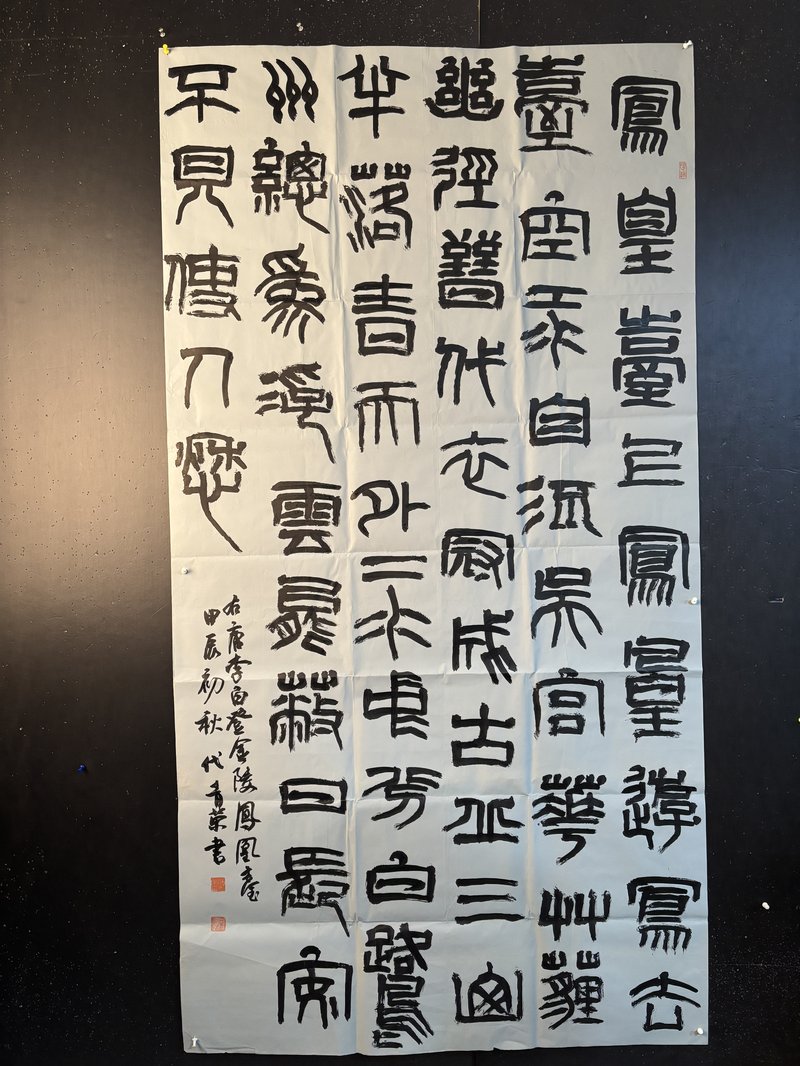 鳳皇臺上鳳皇遊鳳去
臺空江自流吳宮華艸薶
幽徑晉代衣冠成古丘三山
半落青天外二水中分白鷺
州總為浮雲能蔽日長安
不見使人愁
右唐李白登金陵鳳凰臺
甲辰初秋代青榮書